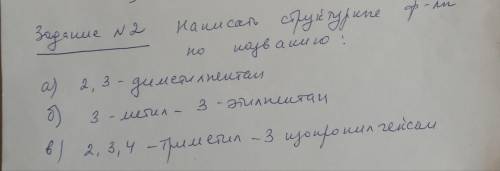 Задание №2 Написать структурные ф-лы
по названию:
а) 2,3-диметилпентан
б) 3-метил-3-этилпентан
в) 2,3,4-триметил-3 изопропилгексан